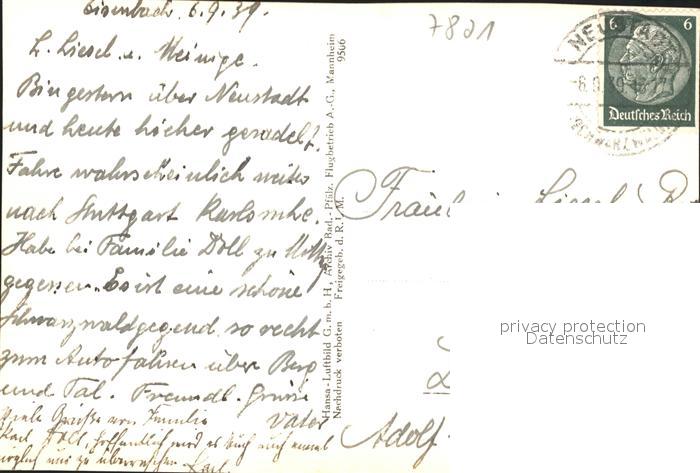 Eisenbach, 6.9.39.
L. Liesel u. Meinige.
Bin gestern über Neustadt
und heute hierher geradelt.
Fahre wahrscheinlich weiter
nach Stuttgart Karlsruhe.
Habe bei Familie Doll zu Mittg
gegessen. Es ist eine schöne
Schwarzwaldgegend so recht
zum Autofahren über Berg
und Tal. Freundl. Grüsse
Vater
Viele Grüße von Familie
Karl Doll, hoffentlich wird es auch einmal
möglich uns zu überraschen. Karl
Hansa-Luftbild G. m. b. H., Archiv Bad.-Pfälz. Flugbetrieb A.-G., Mannheim
Nachdruck verboten Freigegeb. d. R. L. M. 9506
7821
NEUSTADT
6.9.39
SCHWARZWALD
6 6
Deutsches Reich
Fräulein Liesel
Adolf
privacy protection
Datenschutz